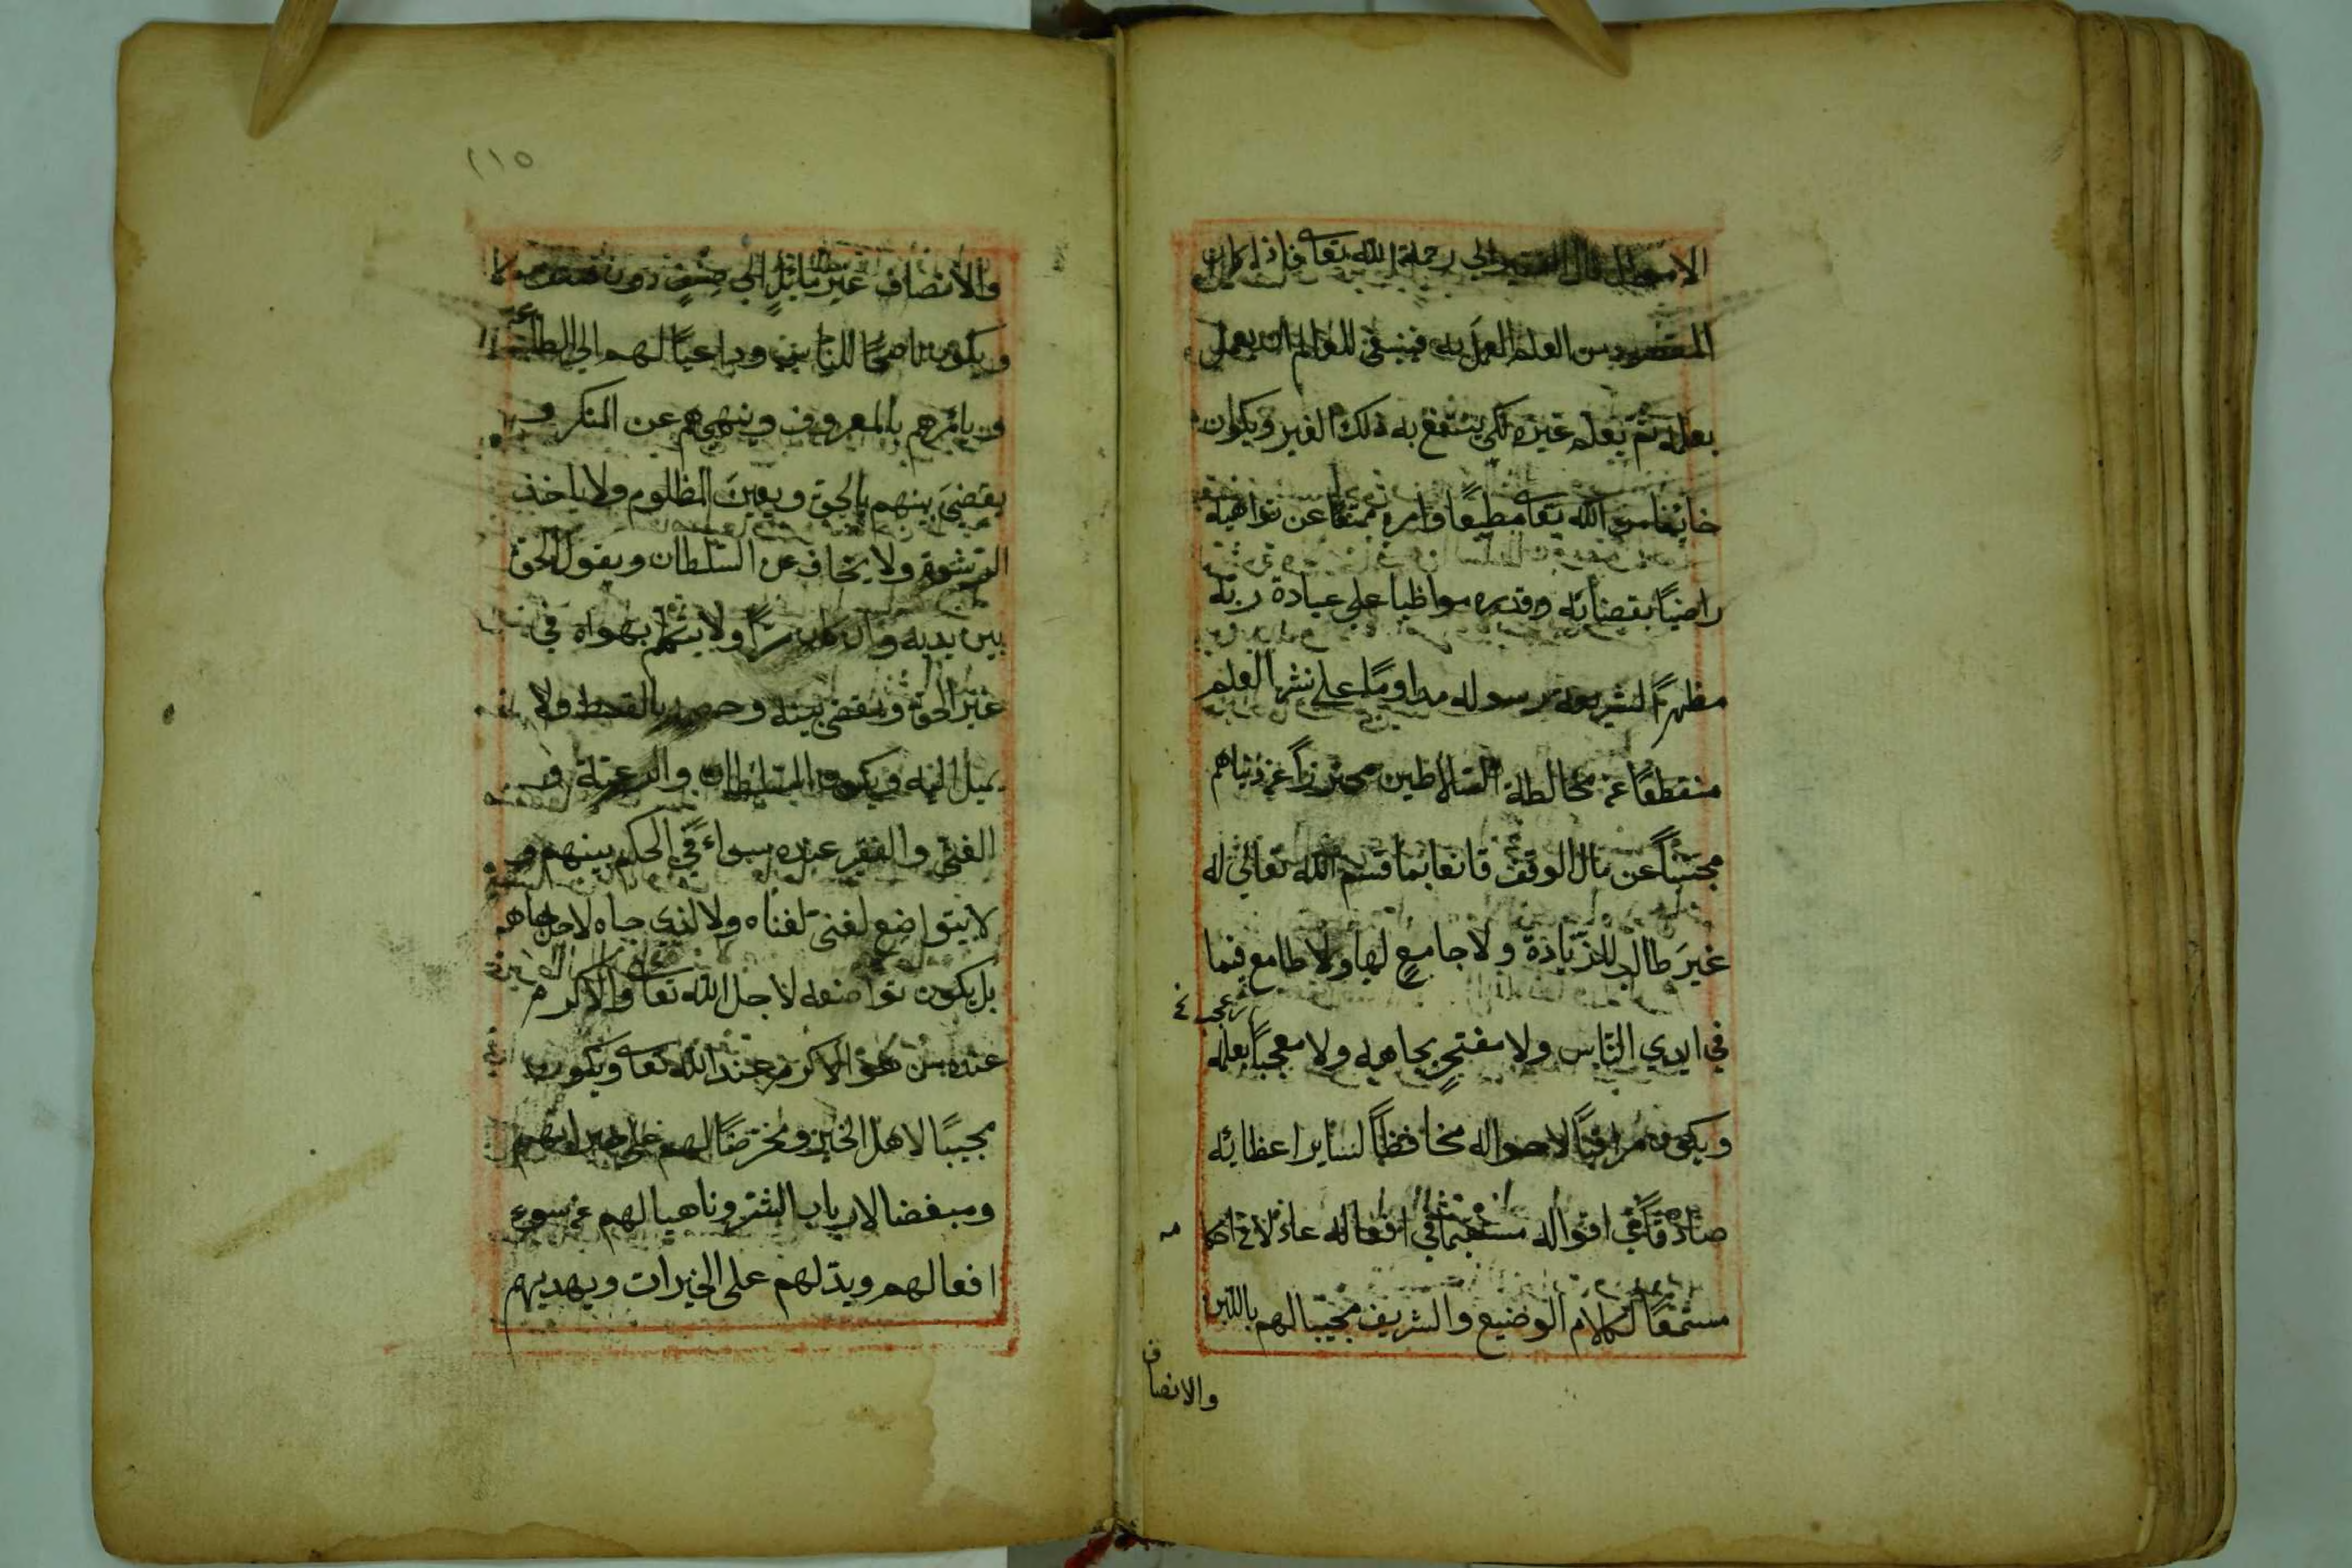 قال الفقير الى رحمة الله تعا فاذا كان
المقصود من العلم العمل به فينبغي للعالم ان يعمل
بعلمه ثم يعلم غيره لكى ينتفع به ذلك الغير ويكون
خائفا من الله تعا مطيعا اوامره ممتنعا عن نواهيه
راضيًا بقضائه وقدره مواظبا على عبادة ربّه
مظهرًا لشريعة رسوله مداومًا على نشر العلم
منقطعًا عن مخالطة السّلاطين محترزاً عن دنياهم
مجتنباً عن مال الوقف قانعا بما قسم الله تعالى له
غيرَ طالب للزّيادة ولا جامعٍ لها ولا طامع فيما
في ايدي النّاس ولا مفتخرٍ بجاهه ولا معجبًا بعلمه
ويكون مراقبًا لاحواله محافظاً لسائر اعضائه
صادقاً في اقواله مستقيمًا في افعاله
مستمعًا لكلام الوضيع والشريف مجيبا لهم باللين
والانصاف
١١٥
والانصاف غير مائلٍ الى
ويكون ناصحًا للناس وداعيًا لهم الى الطاعة
ويأمرهم بالمعروف وينهيهم عن المنكر و
يقضيَ بينهم بالحق ويعينَ المظلوم ولا ياخذ
الرشوة ولا يخاف عن السّلطان ويقول الحق
بين يديه وان كان مرًّا ولا يتهم بهواه في
غير الحق ويقضى بينه وخصمه بالقسط ولا
يميل اليه ويكون السّلطان والرعيّة و
الغنى والفقير عنده سواءً في الحكم بينهم و
لا يتواضع لغنى لغناه ولا لذي جاه لاجل جاهه
بل يكون تواضعه لاجل الله تعا والاكرم
عنده من هو الاكرم عند الله تعا ويكون
مجيبًا لاهل الخير ومحرضًا لهم على خيراتهم
ومبغضا لارباب الشر وناهيا لهم عن سوء
افعالهم ويدّلهم على الخيرات ويهديهم